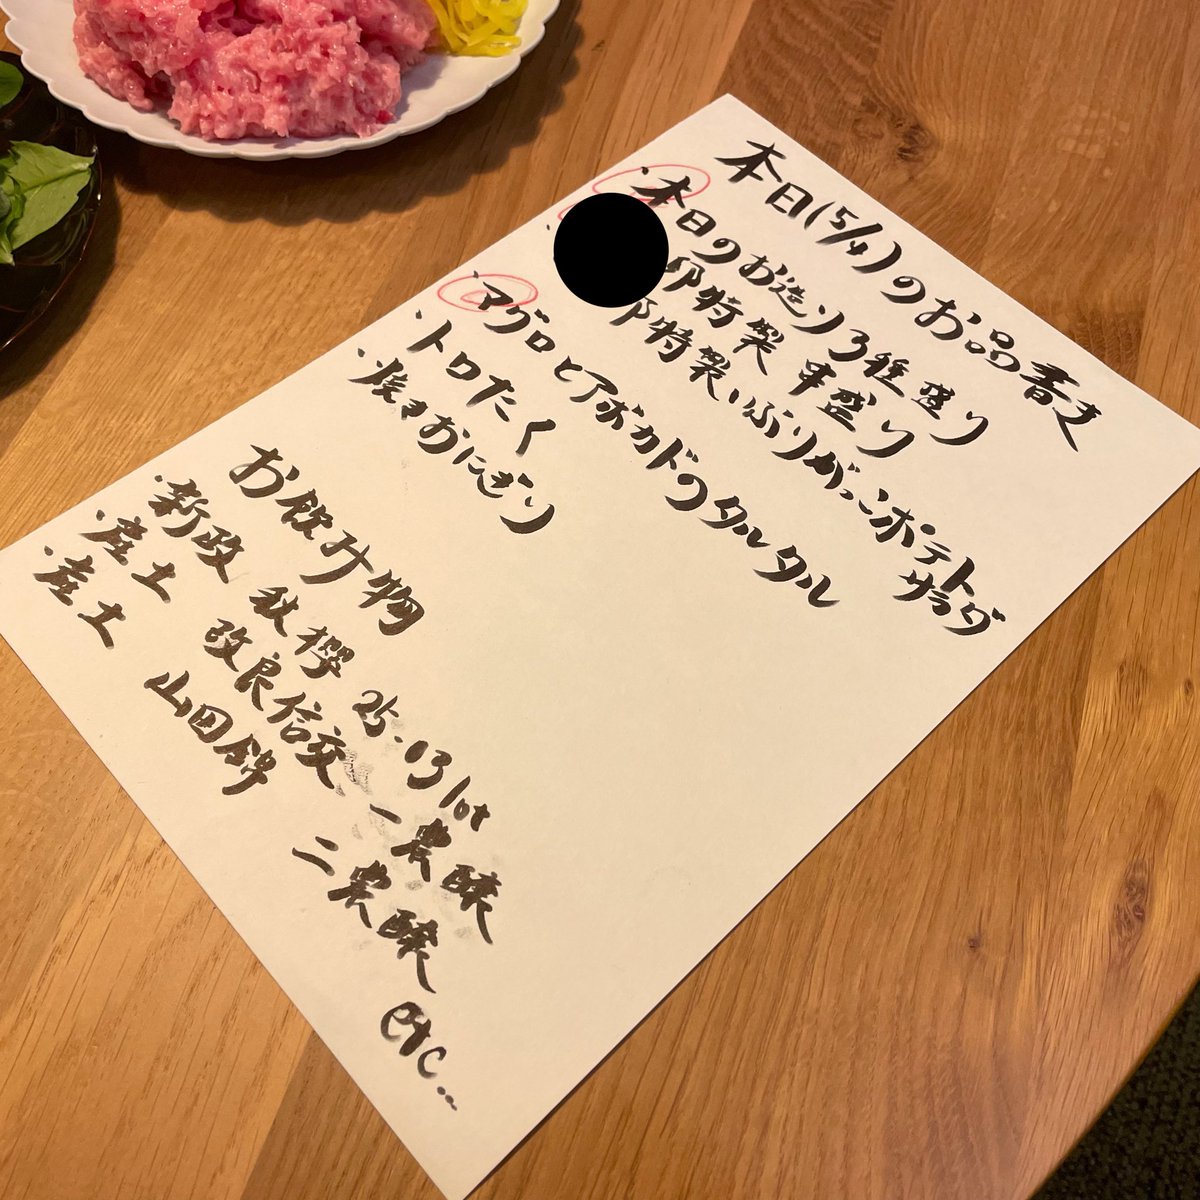 本日(5/4)のお品書き
・本日のお造り3種盛り
邸特製 串盛り
邸特製いぶりがっこポテトサラダ
・マグロとアボカドのタルタル
・トロたく
・焼きおにぎり
お飲み物
・新政 秋櫻 25.13lot
・産土 改良信交 一農醸
・産土 山田錦 二農醸
etc..